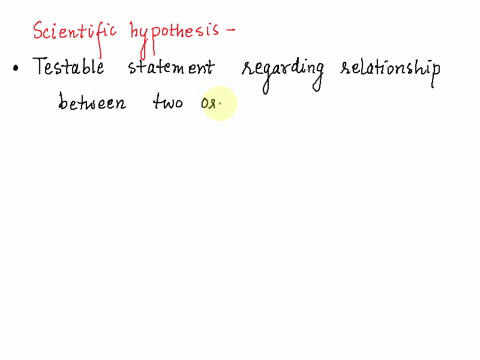 Scientific hypothesis –
• Testable statement regarding relationship
between two or